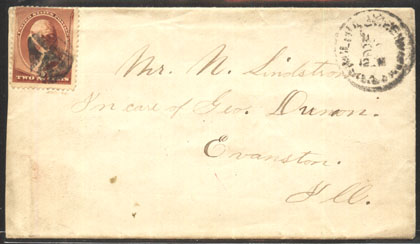 UNITED STATES POSTAGE
TWO CENTS
Mr. N. Lindstrom
In care of Geo. Dunon.
Evanston.
Ill.
MILWAUKEE
12 M